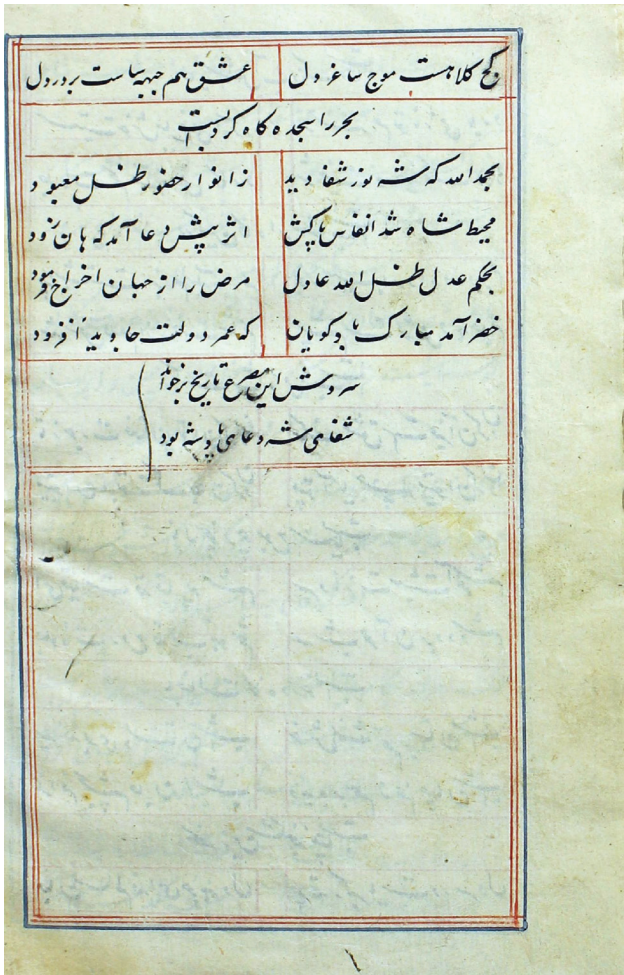 کج کلاهست موج ساغر دل عشق هم جبهه ساست بر در دل
بحر را سجده گاه کرد بست
بحمد الله که شه نور شفا دید ز انوار حضور ظل معبود
محیط شاه شد انفاس پاکش اثر پیش دعا آمد که هان زود
بحکم عدل ظل الله عادل مرض را از جهان اخراج فرمود
خضر آمد مبارک باد گویان که عمر دولت جاوید افزود
سروش این مصرع تاریخ برخواند
شفای شه دعای پادشه بود